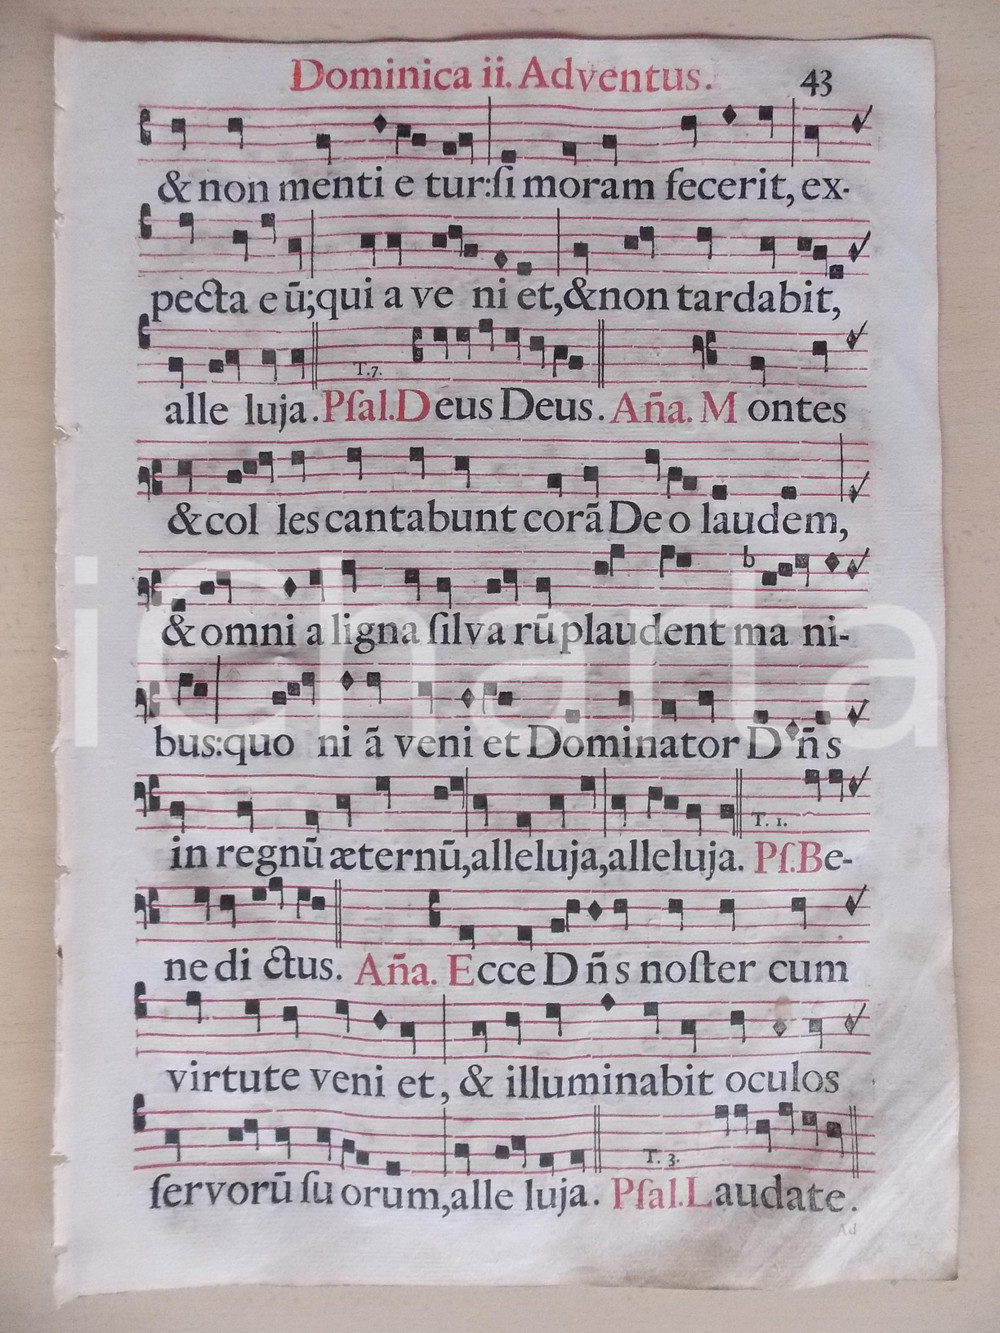 Dominica ii. Adventus. 43
& non menti e tur:ſi moram fecerit, ex-
pecta e ū;qui a ve ni et,&non tardabit,
T.7.
alle luja. Pſal.Deus Deus. Aña. M ontes
&col les cantabunt corā De o laudem,
b
& omni a ligna ſilva rū plaudent ma ni-
bus:quo ni ā veni et Dominator D'ñs
T. 1.
in regnū æternū,alleluja,alleluja. Pſ.Be-
ne di ctus. Aña. Ecce D ñ s noſter cum
virtute veni et, & illuminabit oculos
T. 3.
ſervorū ſu orum,alle luja. Pſal.Laudate.
Ad
iCharta